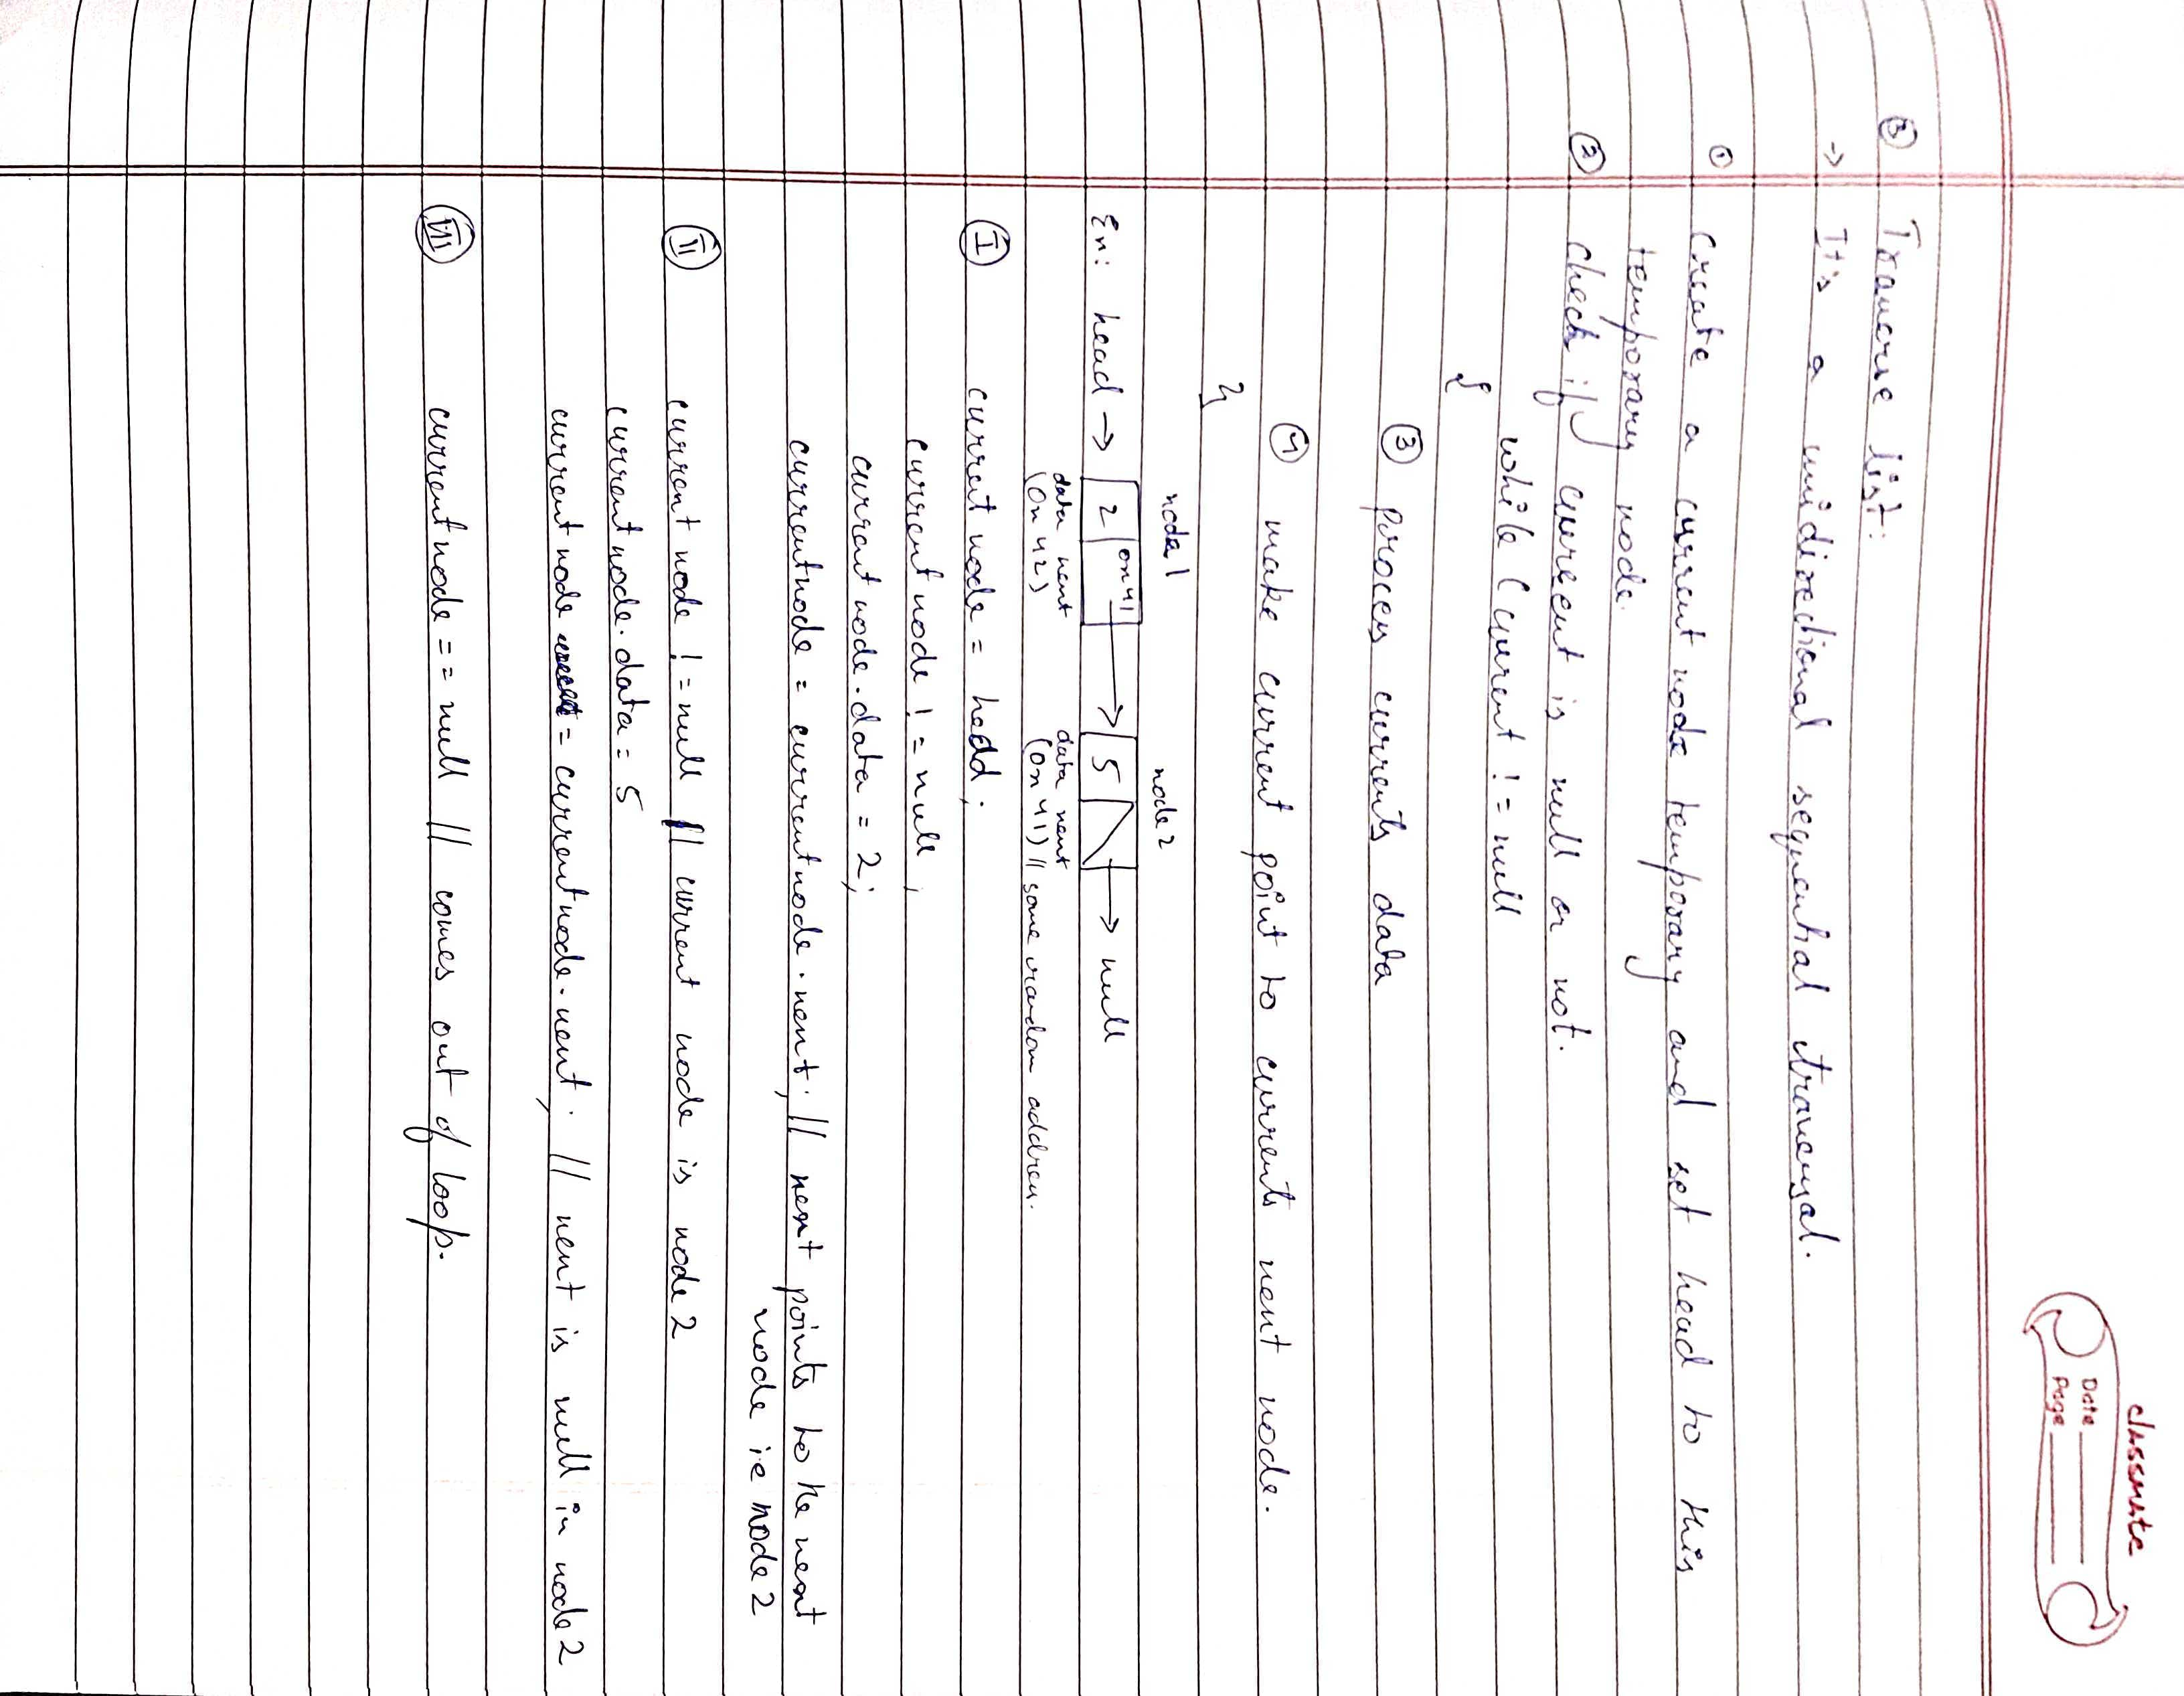 classmate
Date
Page
③ Traverse list:
→ It's a unidirectional sequential traversal.
① Create a current node temporary and set head to this
temporary node.
② check if current is null or not.
while (current != null
{
③ process currents data
④ make current point to currents next node.
}
node1 node2
Ex: head → 2 0x41 → 5 → null
data next data next
(0x42) (0x41) // some random address.
I current node = head;
current node != null;
current node.data = 2;
current node = current node.next; // next points to the next
node ie node 2
II current node != null // current node is node 2
current node.data = 5
current node = current node.next; // next is null in node 2
III current node == null // comes out of loop.